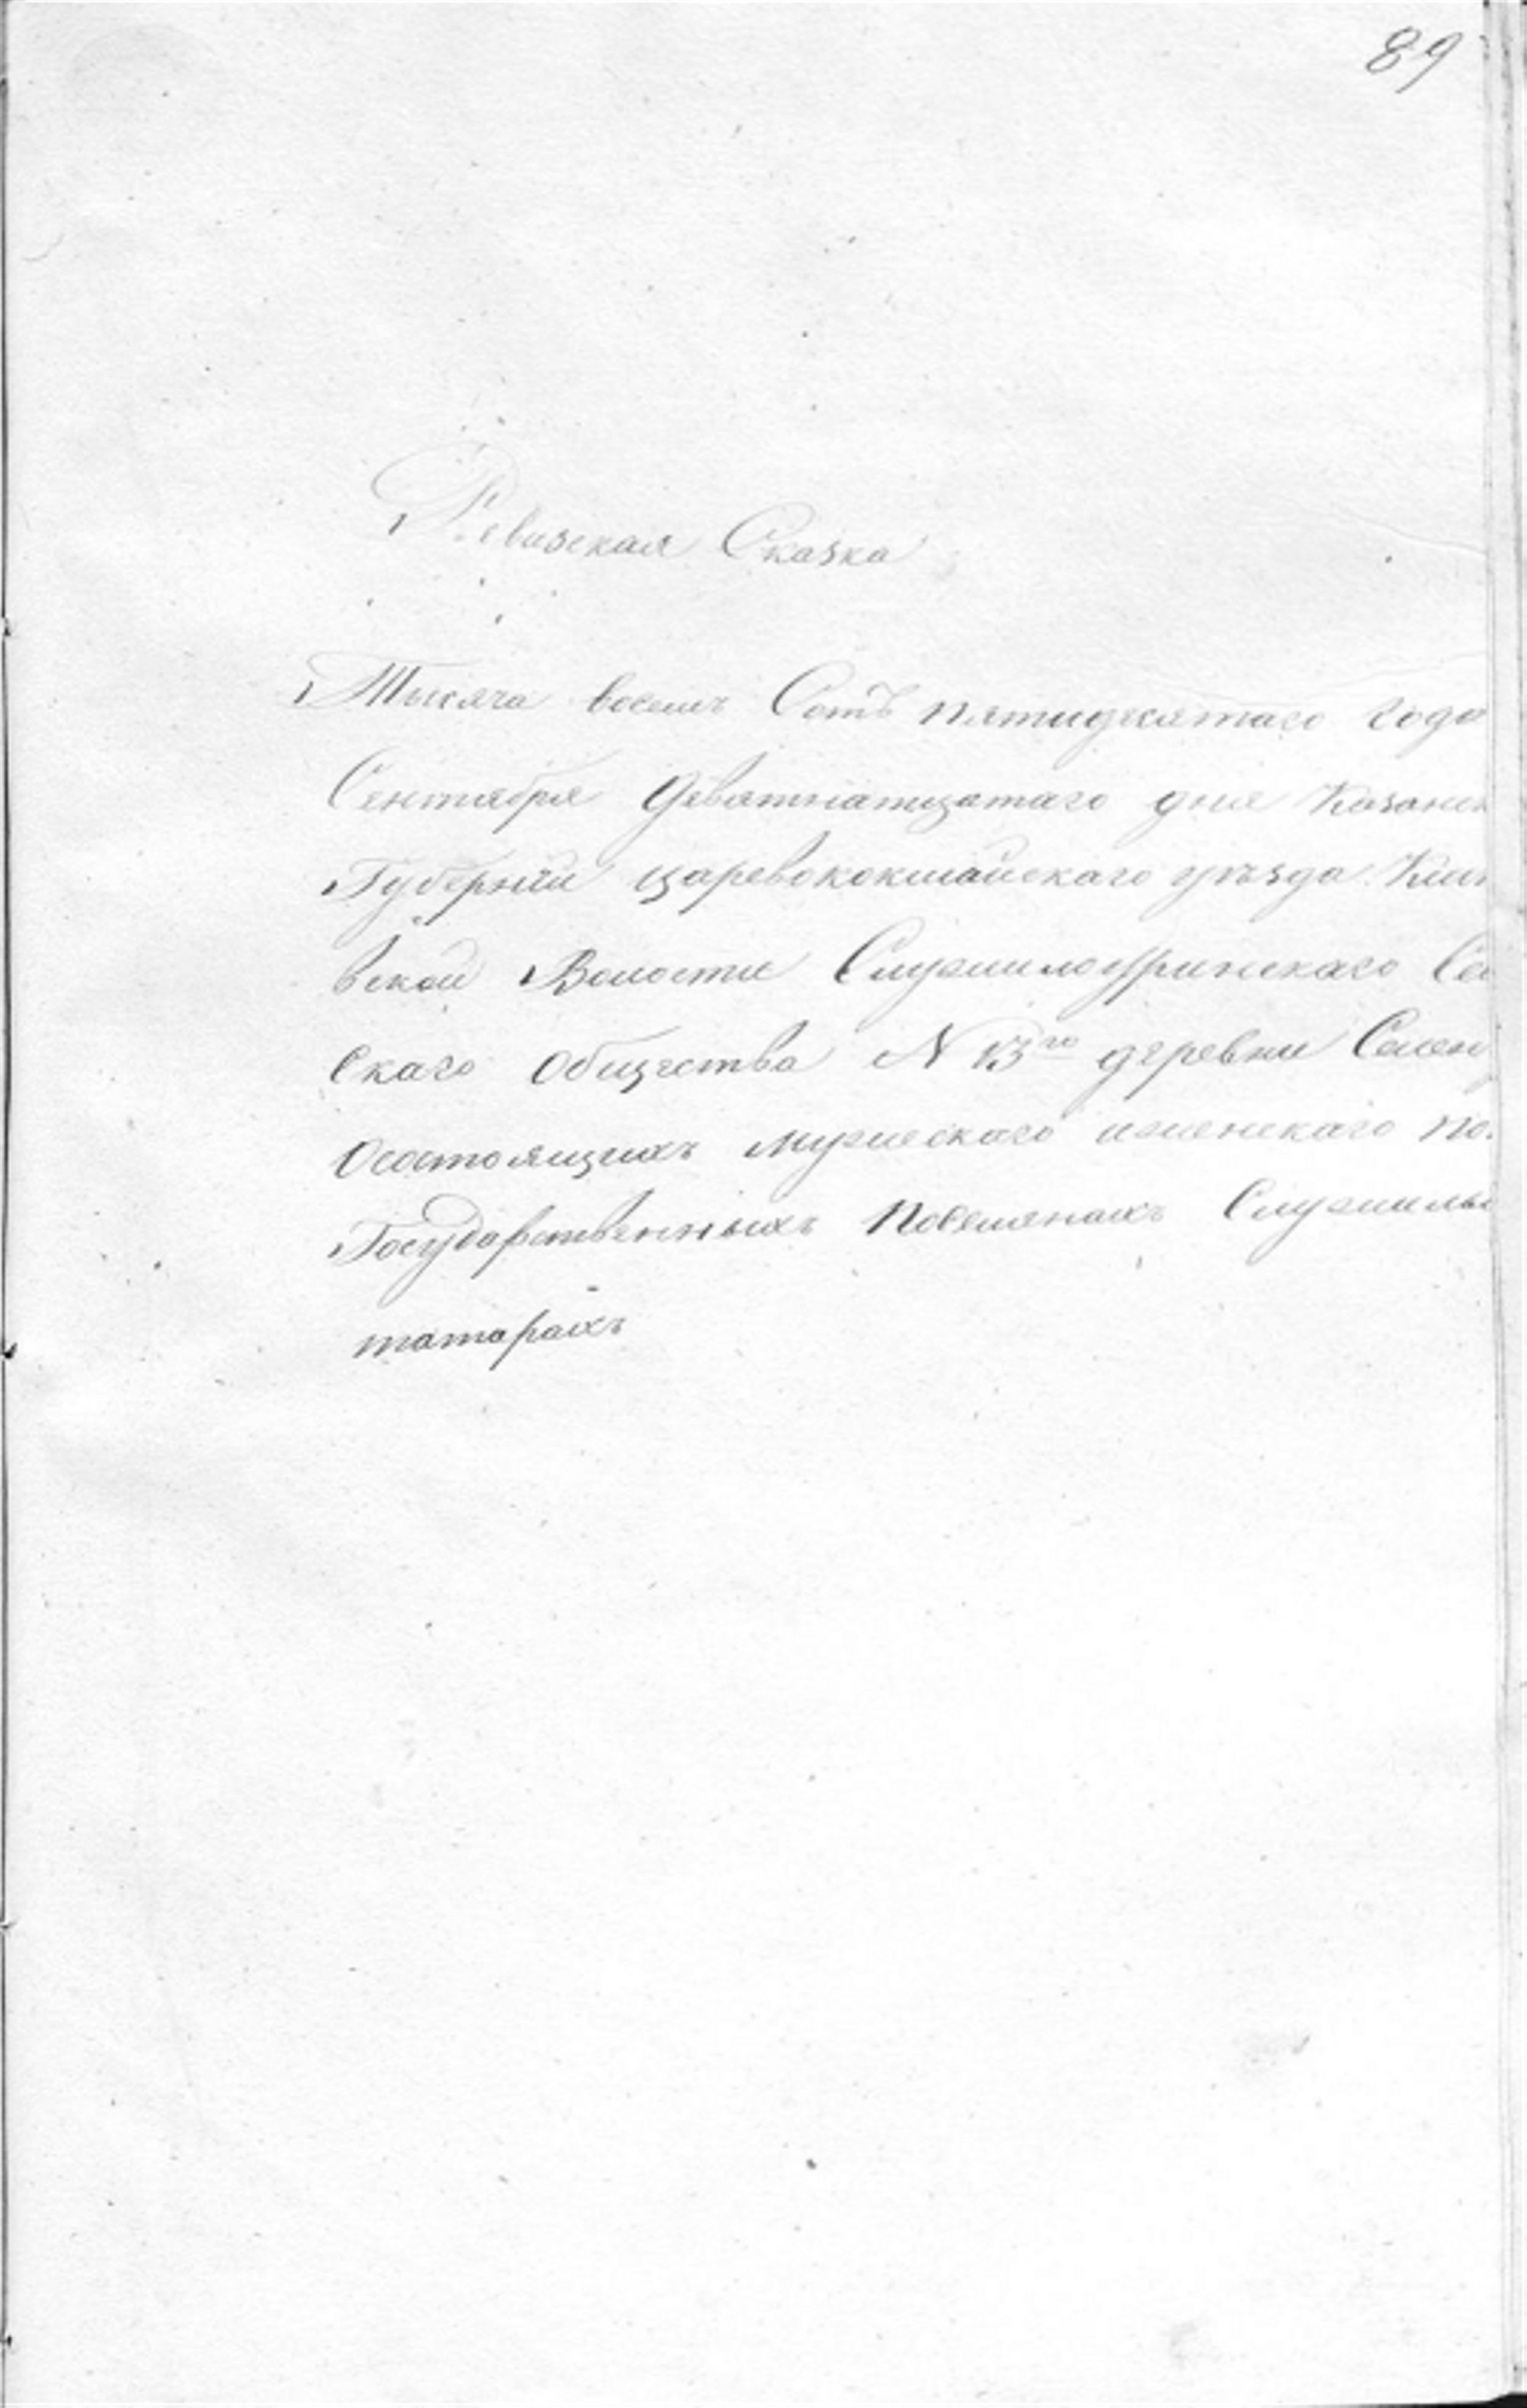 89
Ревизская Сказка
Тысяча восемь Сотъ пятидесятаго года
Сентября Девятнатцатаго дня Казанск
Губернiи царевококшайскаго уѣзда
вской Волости Служилоуринскаго Сел
скаго общества N 13го деревни
Осостоящихъ мужескаго иженскаго по
Государственныхъ Поселянахъ Служилы
татарахъ